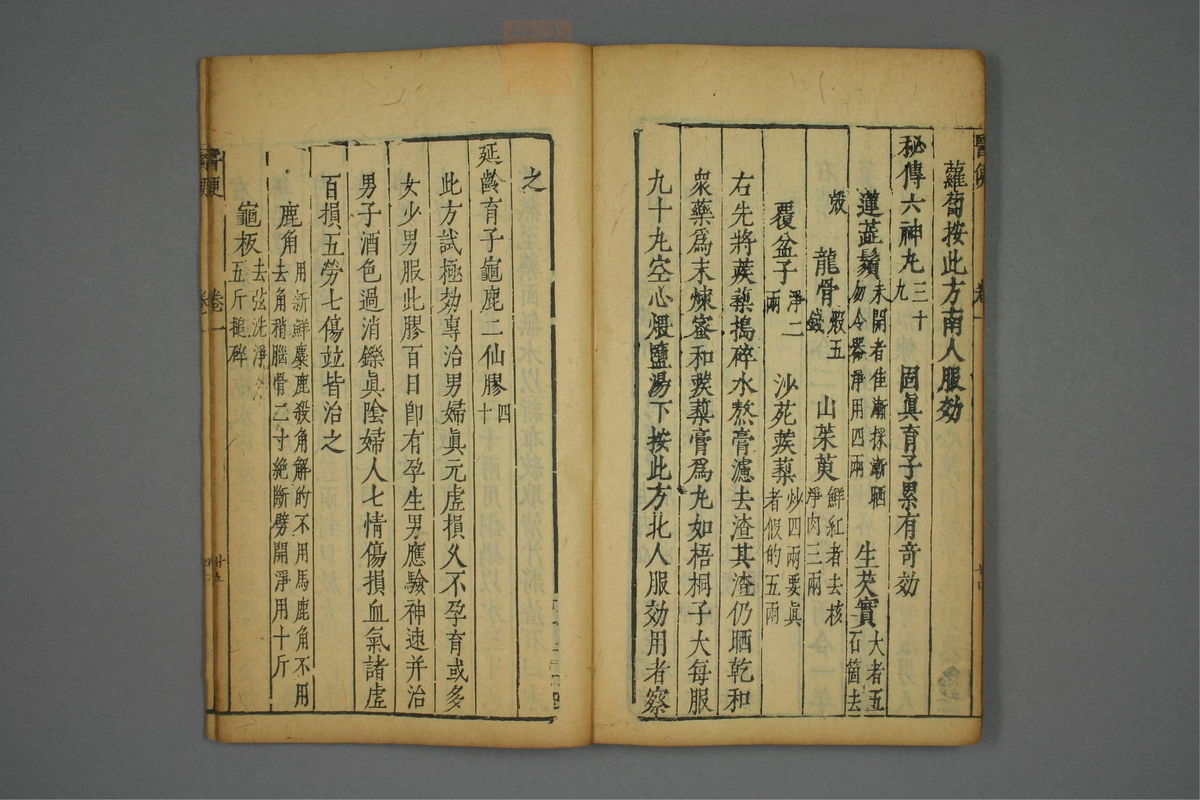 醫便 卷一
蘿蔔按此方南人服効
秘傳六神丸三十九 固眞育子累有奇効
蓮蕋鬚未開者佳漸採漸晒勿令器淨用四兩 生芡實大者五百箇去
殼 龍骨煅五錢 山茱萸鮮紅者去核淨肉三兩
覆盆子淨二兩 沙苑蒺藜炒四兩要眞者假的五兩
右先將蒺藜搗碎水熬膏濾去渣其渣仍晒乾和
衆藥爲末煉蜜和蒺藜膏爲丸如梧桐子大每服
九十丸空心煖鹽湯下按此方北人服効用者察
之
延齡育子龜鹿二仙膠四十
此方試極効專治男婦眞元虛損久不孕育或多
女少男服此膠百日卽有孕生男應驗神速并治
男子酒色過消鑠眞陰婦人七情傷損血氣諸虛
百損五勞七傷竝皆治之
鹿角用新鮮麋鹿殺角解的不用馬鹿角不用去角稍腦骨二寸絶斷劈開淨用十斤
龜板去弦洗淨五斤搥碎
醫便 卷一 廿五